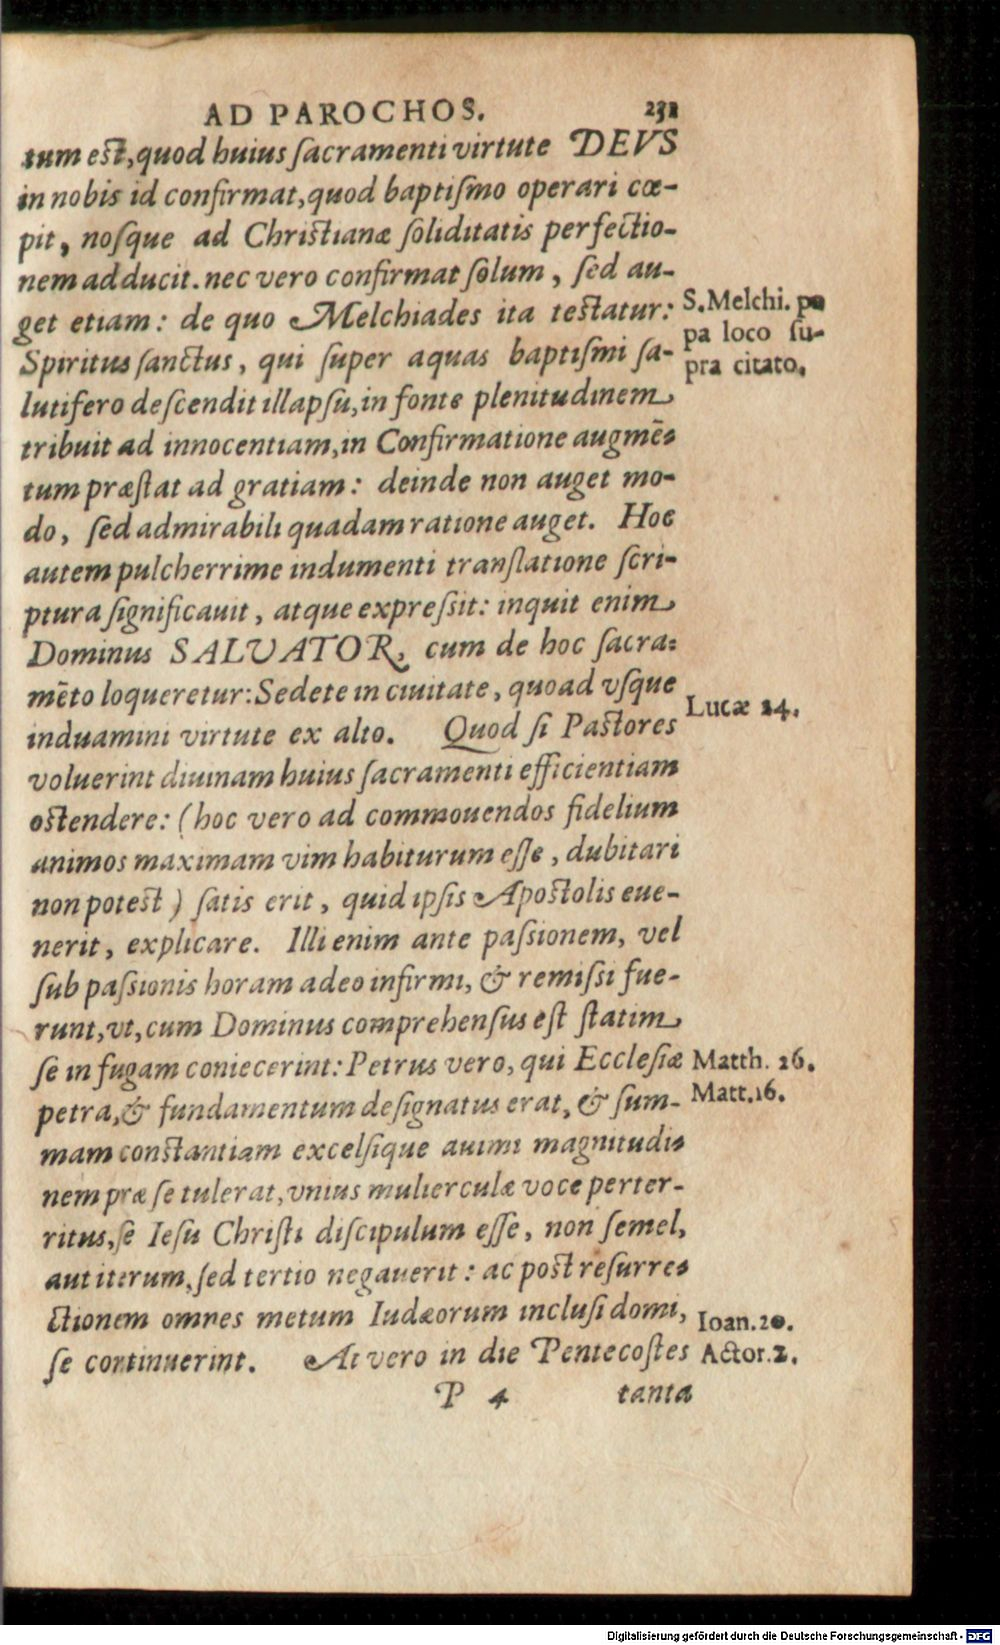 AD PAROCHOS. 231
tum est, quod huius sacramenti virtute DEVS
in nobis id confirmat, quod baptiſmo operari cœ-
pit, noſque ad Chriſtianæ ſoliditatis perfectio-
nem adducit. nec vero confirmat ſolum, ſed au-
get etiam: de quo Melchiades ita teſtatur:
S. Melchi. pa
pa loco ſu-
pra citato.
Spiritus ſanctus, qui ſuper aquas baptiſmi ſa-
lutifero deſcendit illapſu, in fonte plenitudinem
tribuit ad innocentiam, in Confirmatione augmē-
tum præſtat ad gratiam: deinde non auget mo-
do, ſed admirabili quadam ratione auget. Hoc
autem pulcherrime indumenti tranſlatione ſcri-
ptura ſignificauit, atque expreſsit: inquit enim
Dominus SALVATOR, cum de hoc ſacra-
mēto loqueretur: Sedete in ciuitate, quoad vſque
Lucæ 24.
induamini virtute ex alto. Quod ſi Paſtores
voluerint diuinam huius ſacramenti efficientiam
oſtendere: (hoc vero ad commouendos fidelium
animos maximam vim habiturum eſſe, dubitari
non poteſt) ſatis erit, quid ipſis Apoſtolis eue-
nerit, explicare. Illi enim ante paſsionem, vel
ſub paſsionis horam adeo infirmi, & remiſsi fue-
runt, vt, cum Dominus comprehenſus eſt ſtatim
ſe in fugam coniecerint: Petrus vero, qui Eccleſiæ
Matth. 26.
petra, & fundamentum deſignatus erat, & ſum-
Matt. 16.
mam conſtantiam excelſique auimi magnitudi-
nem præ ſe tulerat, vnius mulierculæ voce perter-
ritus, ſe Ieſu Chriſti diſcipulum eſſe, non ſemel,
aut iterum, ſed tertio negauerit: ac poſt reſurre-
ctionem omnes metum Iudæorum incluſi domi,
Ioan. 20.
ſe continuerint. At vero in die Pentecoſtes
Actor. 2.
P 4 tanta
Digitalisierung gefördert durch die Deutsche Forschungsgemeinschaft - DFG